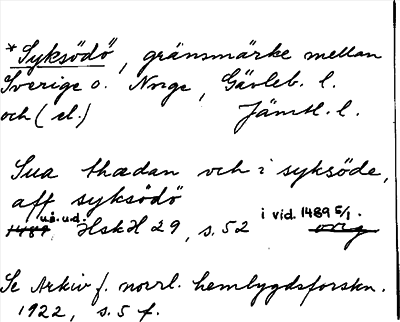 *Syksödö, gränsmärke mellan
Sverige o. Norge, Gävleb. l.
och (el.) Jämtl. l.
Sua thædan och i syksöde,
aff syksödö
u.å.u.d. i vid. 1489 5/1.
1489 HskH 29, s. 52 orig
Se Arkiv f. norrl. hembygdsforskn.
1922, s. 5 f.